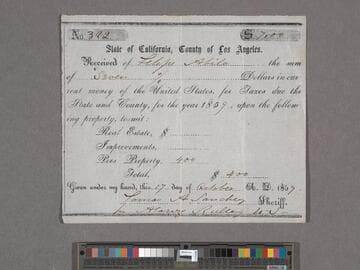 No. 392 $ 7.00
State of California, County of Los Angeles.
Received of Felipe Abila the sum
of Seven Dollars in cur
rent money of the United States, for Taxes due the
State and County, for the year 1859, upon the follow-
ing property, to-wit:
Real Estate, $
Improvements,
Pers Property, 400
Total, $ 400
Given under my hand, this 17 day of October A. D. 1857
Tomas A Sanchez Sheriff.